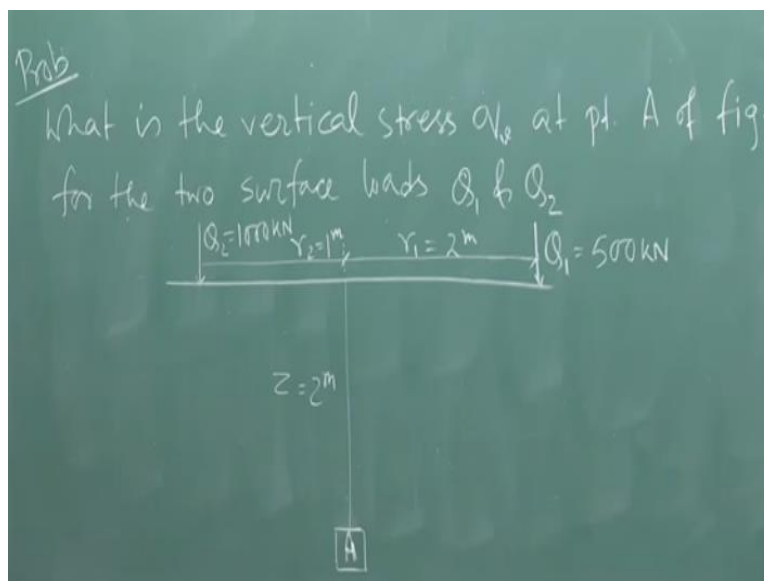 Prob
What is the vertical stress σv at pt. A of fig.
for the two surface loads Q1 & Q2
Q2=1000KN r2=1m r1=2m Q1=500KN
Z=2m
A